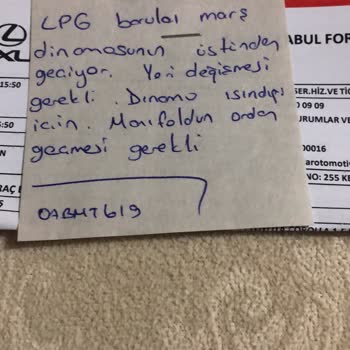 LPG boruları marş
dinamosunun üstünden
geçiyor. Yeri değişmesi
gerekli. Dinamo ısındığı
için. Manifoldun ordan
geçmesi gerekli
0ABMT619
LEXU
15:50
5:50
ABUL FOR
SER.HİZ.VE TİC
0 09 09
URUMLAR V
00016
arotomotiv
NO: 255 KE